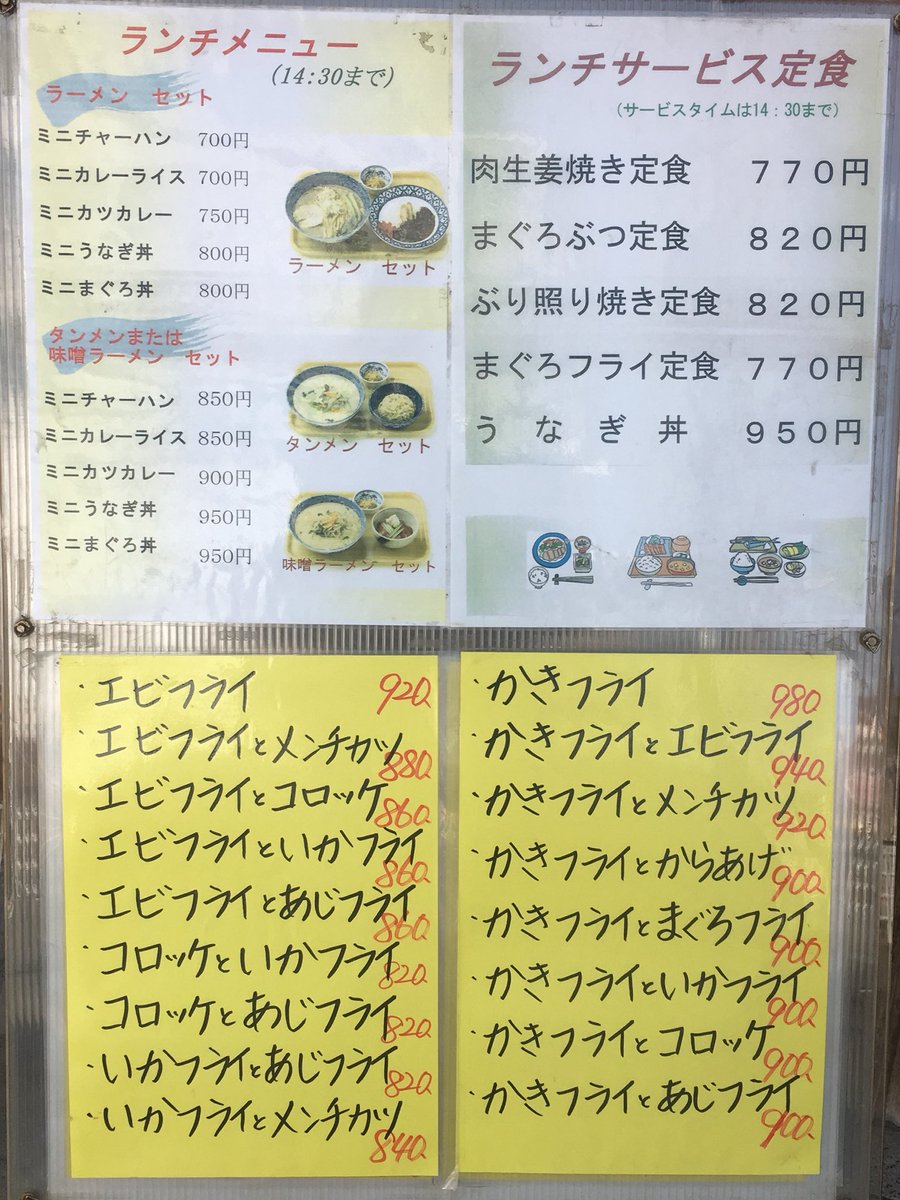 ランチメニュー
(14:30まで)
ラーメン セット
ミニチャーハン 700円
ミニカレーライス 700円
ミニカツカレー 750円
ミニうなぎ丼 800円
ミニまぐろ丼 800円
ラーメン セット
タンメンまたは
味噌ラーメン セット
ミニチャーハン 850円
ミニカレーライス 850円
ミニカツカレー 900円
ミニうなぎ丼 950円
ミニまぐろ丼 950円
タンメン セット
味噌ラーメン セット
ランチサービス定食
(サービスタイムは14:30まで)
肉生姜焼き定食 770円
まぐろぶつ定食 820円
ぶり照り焼き定食 820円
まぐろフライ定食 770円
うなぎ丼 950円
・エビフライ 920
・エビフライとメンチカツ 880
・エビフライとコロッケ 860
・エビフライといかフライ 860
・エビフライとあじフライ 860
・コロッケといかフライ 820
・コロッケとあじフライ 820
・いかフライとあじフライ 820
・いかフライとメンチカツ 840
・かきフライ 980
・かきフライとエビフライ 940
・かきフライとメンチカツ 920
・かきフライとからあげ 900
・かきフライとまぐろフライ 900
・かきフライといかフライ 900
・かきフライとコロッケ 900
・かきフライとあじフライ 900